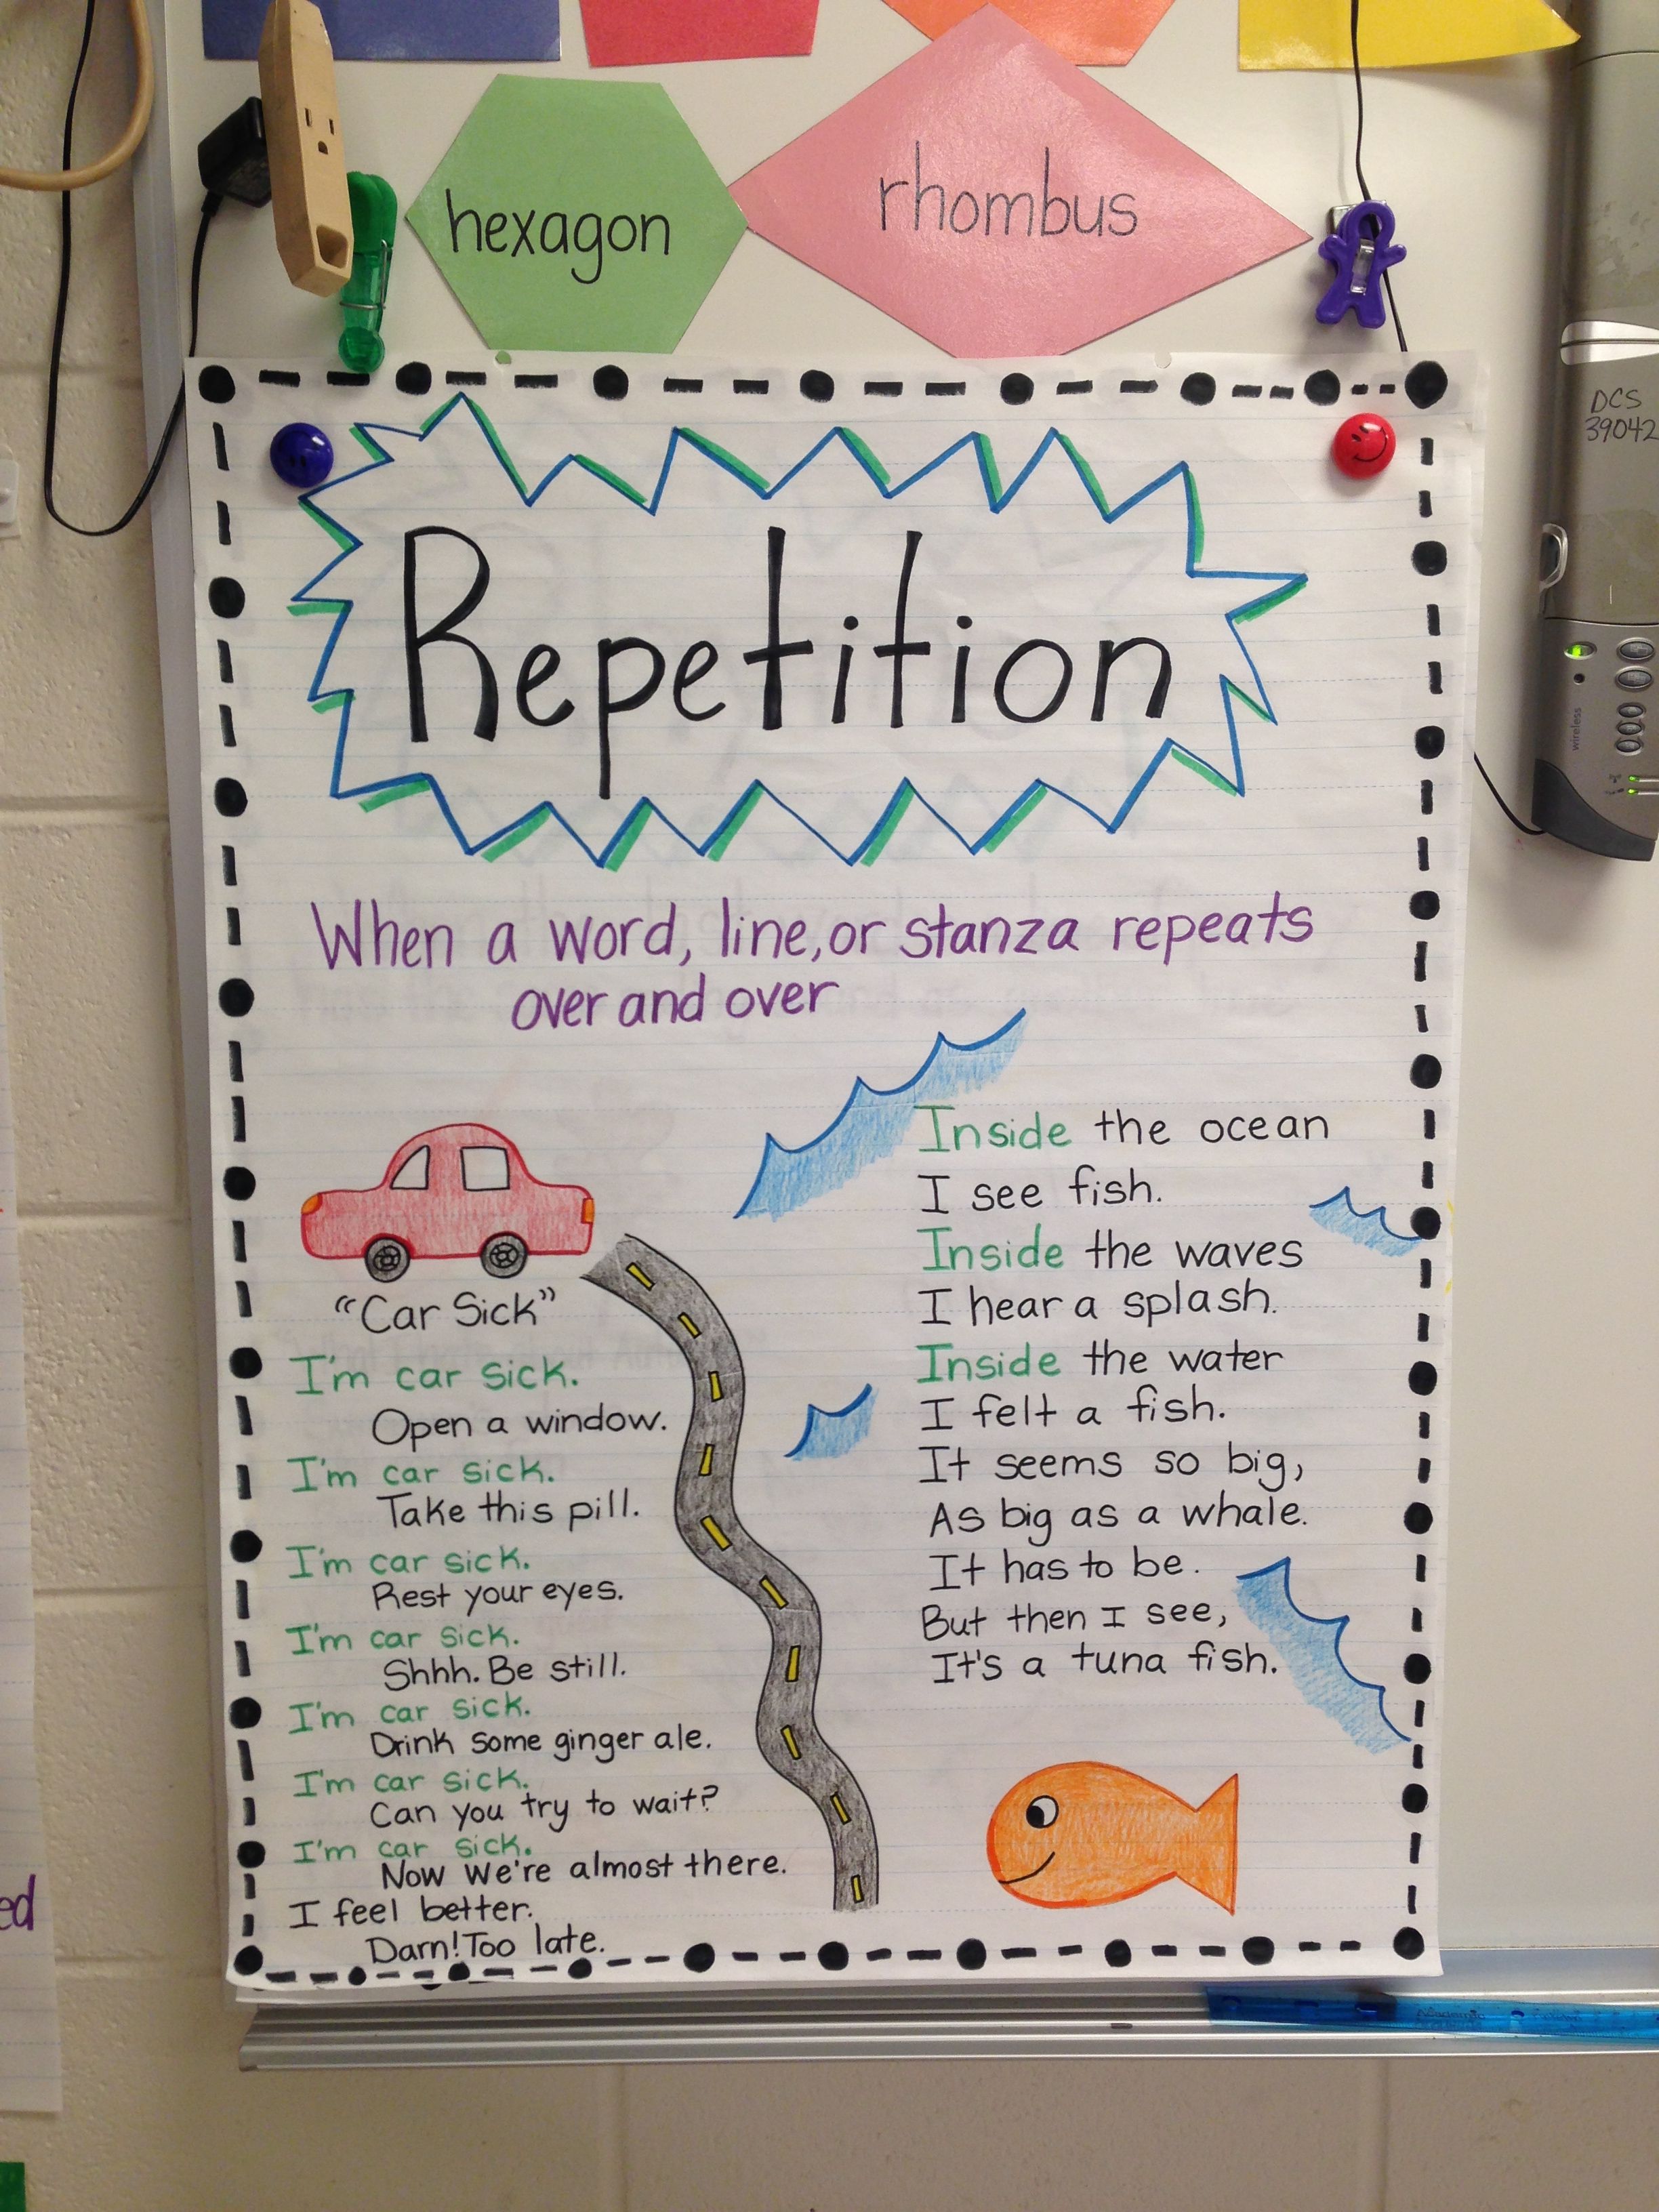 hexagon
rhombus
DCS
39042
wireless
Repetition
When a word, line, or stanza repeats
over and over
"Car Sick"
I'm car sick.
Open a window.
I'm car sick.
Take this pill.
I'm car sick.
Rest your eyes.
I'm car sick.
Shhh. Be still.
I'm car sick.
Drink some ginger ale.
I'm car sick.
Can you try to wait?
I'm car sick.
Now we're almost there.
I feel better.
Darn! Too late.
Inside the ocean
I see fish.
Inside the waves
I hear a splash.
Inside the water
I felt a fish.
It seems so big,
As big as a whale.
It has to be.
But then I see,
It's a tuna fish.
ed